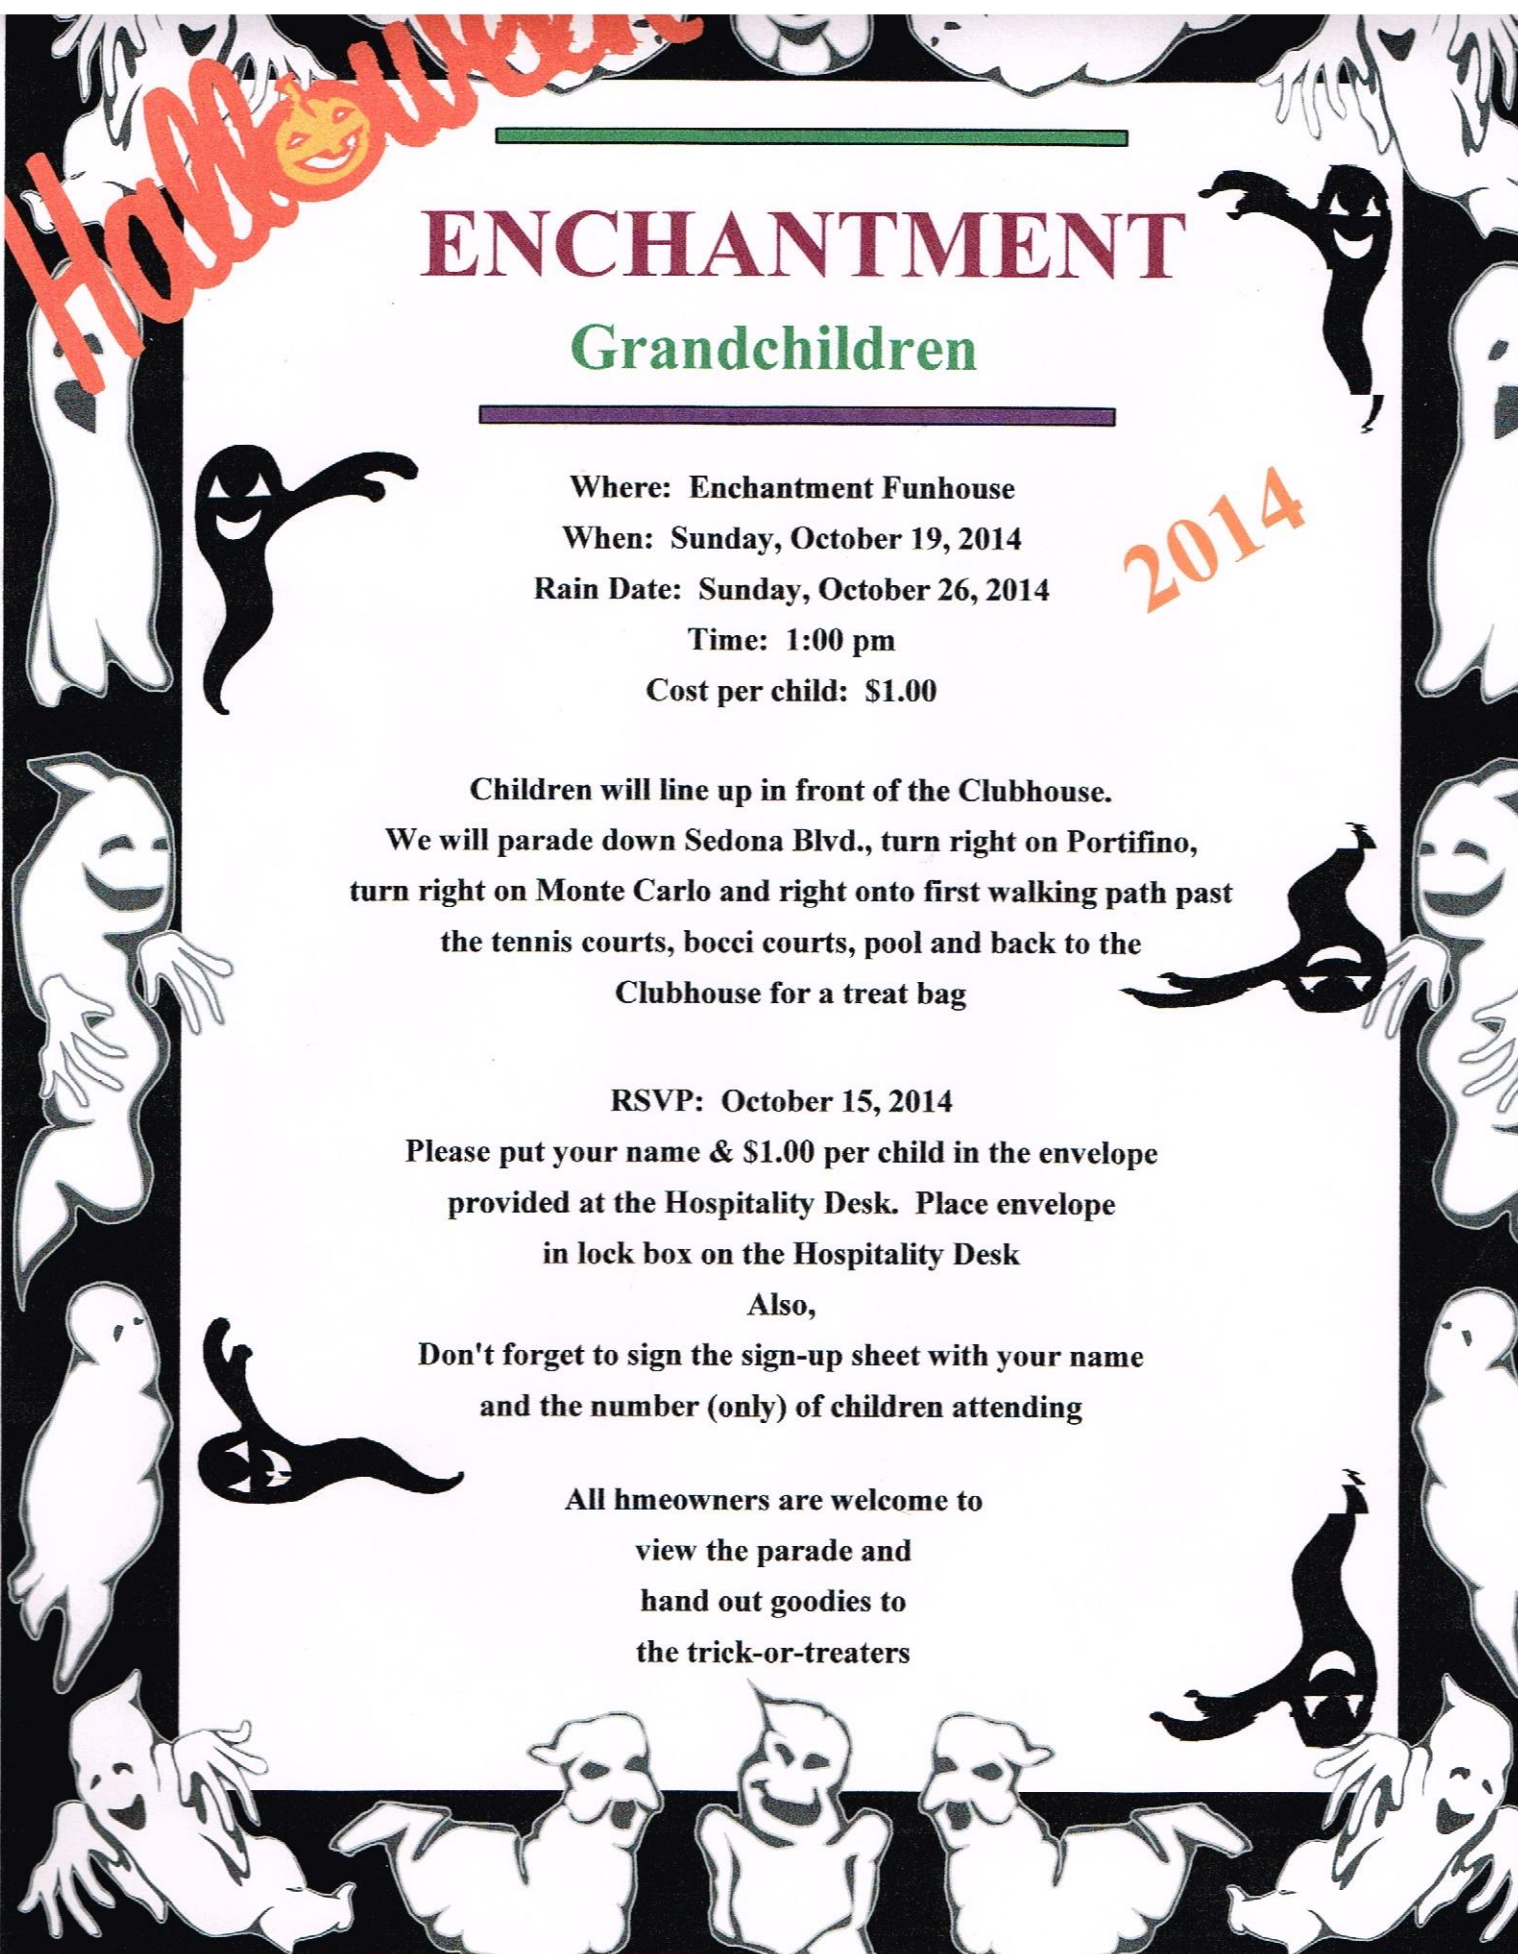 Halloween
ENCHANTMENT
Grandchildren
Where: Enchantment Funhouse
When: Sunday, October 19, 2014
Rain Date: Sunday, October 26, 2014
Time: 1:00 pm
Cost per child: $1.00
2014
Children will line up in front of the Clubhouse.
We will parade down Sedona Blvd., turn right on Portifino,
turn right on Monte Carlo and right onto first walking path past
the tennis courts, bocci courts, pool and back to the
Clubhouse for a treat bag
RSVP: October 15, 2014
Please put your name & $1.00 per child in the envelope
provided at the Hospitality Desk. Place envelope
in lock box on the Hospitality Desk
Also,
Don't forget to sign the sign-up sheet with your name
and the number (only) of children attending
All hmeowners are welcome to
view the parade and
hand out goodies to
the trick-or-treaters